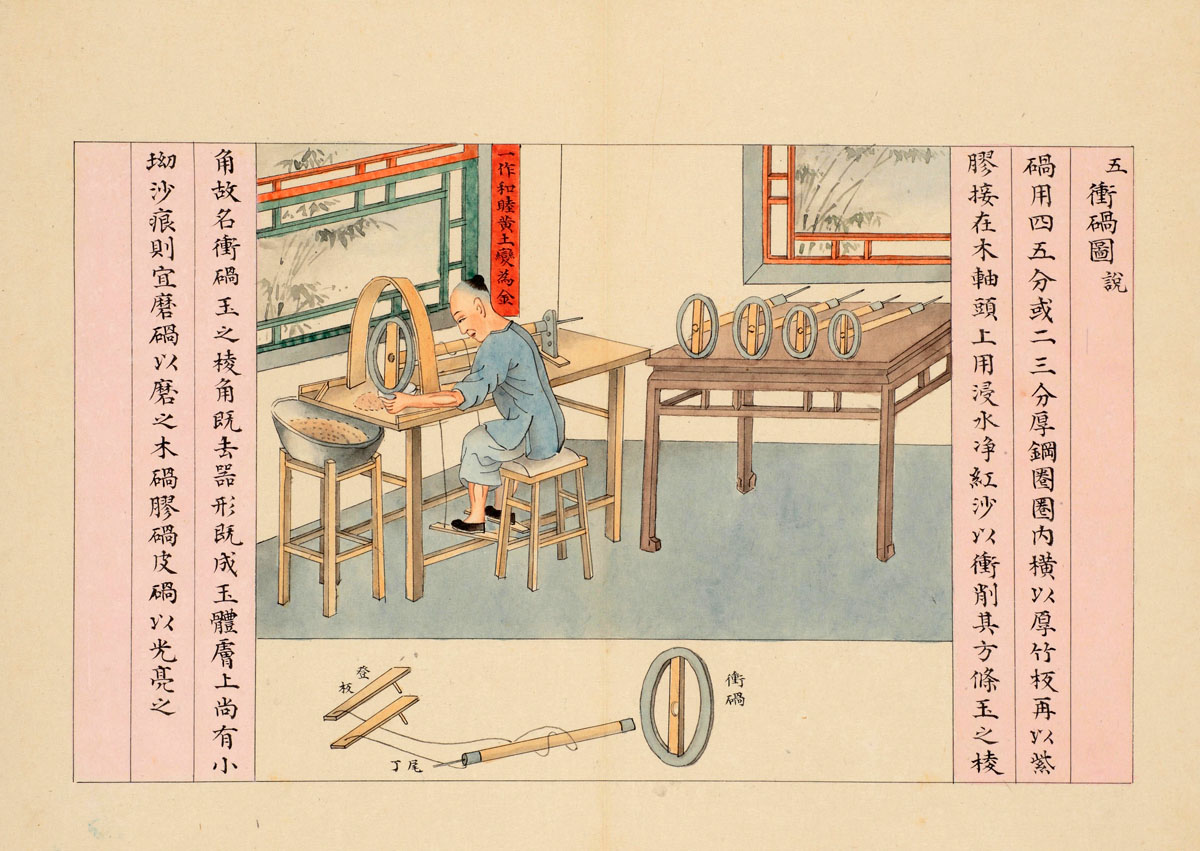 五 衝碢圖說
碢用四五分或二三分厚鋼圈圈内橫以厚竹板再以紫
膠接在木軸頭上用浸水净紅沙以衝削其方條玉之棱
角故名衝碢玉之棱角既去器形既成玉體膚上尚有小
坳沙痕則宜磨碢以磨之木碢膠碢皮碢以光亮之
一作和睦黄土變為金
衝碢
登板
尾丁